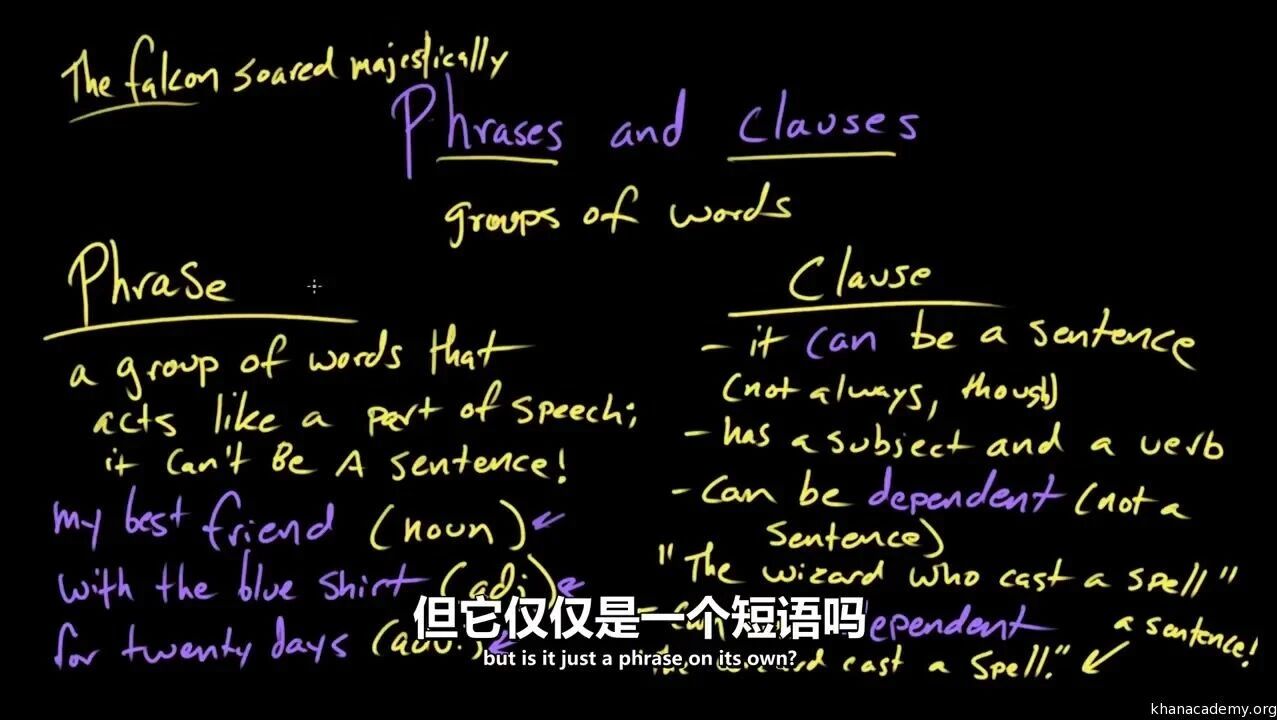 The falkon soared majestically
Phrases and clauses
groups of words
Phrase
a group of words that
acts like a part of speech;
it can't Be A sentence!
my best friend (noun)
with the blue shirt (adj)
for twenty days (adv.)
Clause
- it can be a sentence
(not always, though)
- has a subject and a verb
- can be dependent (not a
sentence)
"The wizard who cast a spell"
- can
a sentence!
cast a spell."
但它仅仅是一个短语吗
but is it just a phrase on its own?
khanacademy.org